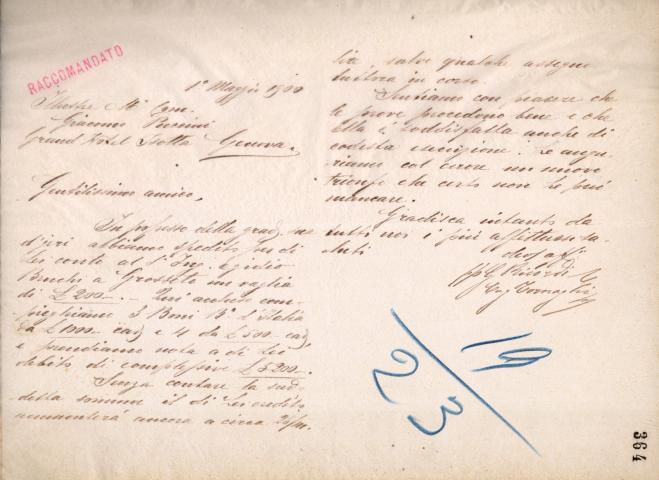 RACCOMANDATO
1° Maggio 1900
Illustre M° Com.
Giacomo Puccini
Grand Hotel Isotta Genova.
Gentilissimo amico,
In possesso della grad. sua
d'jeri abbiamo spedito per di
Lei conto al S. Ing. Egidio
Bruchi a Grosseto un vaglia
di £ 200 -. - Qui accluso com-
pieghiamo 3 Boni Ba d'Italia
da £ 1000 cad e 4 da £ 500 cad,
e prendiamo nota a di Lei
debito di complessive £ 5200.
Senza contare la sud-
detta somma il di Lei credito
aumenterà ancora a circa
lire, salvo qualche assegno
tuttora in corso.
Sentiamo con piacere che
le prove procedono bene e che
Ella è soddisfatta anche di
codesta esecuzione. Le augu-
riamo col cuore un nuovo
trionfo che certo non le può
mancare.
Gradisca intanto da
tutti noi i più affettuosi sa-
luti
G. Ricordi
Eug. Tornaghi
19
23
364